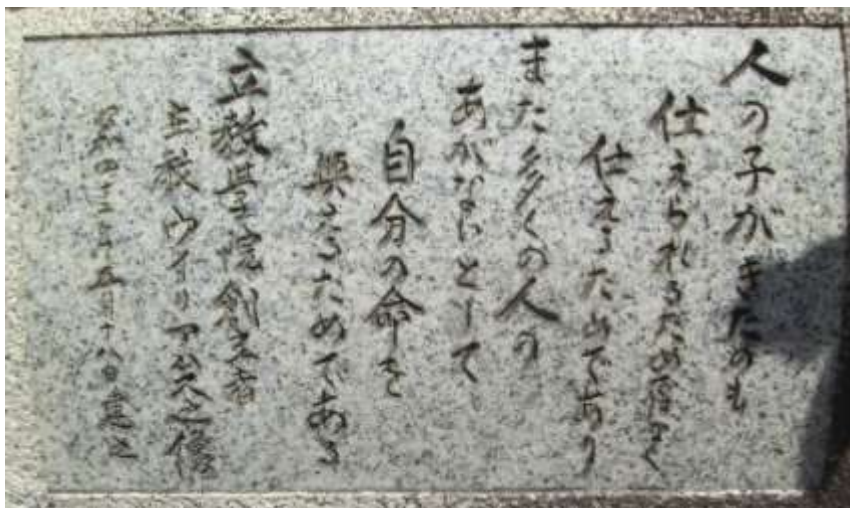 人の子がきたのも
仕えられるため
仕えるためであり
また多くの人の
あがないとして
自分の命を
与えるためである
立教學院創立者
主教ウイリアムス之像
昭和四十三年五月十八日建之